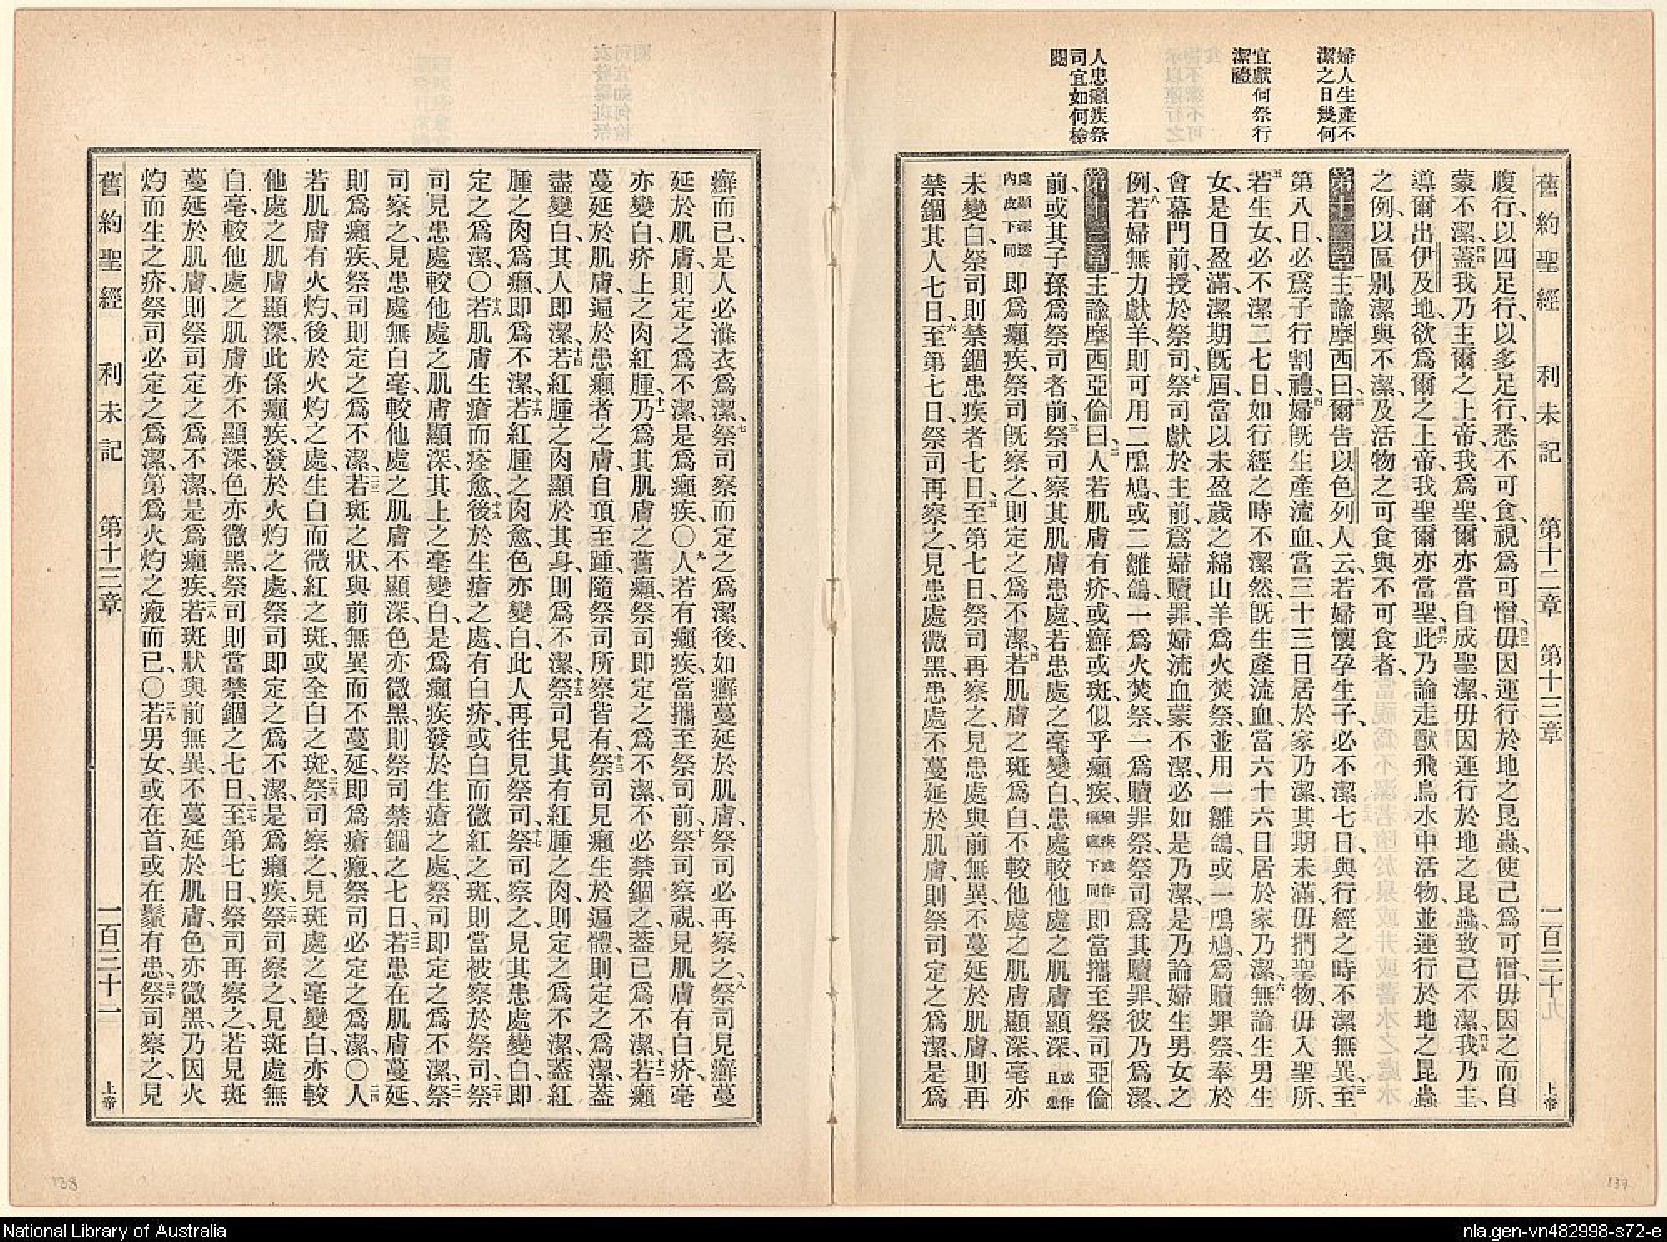 婦人生產不
潔之日幾何
宜獻何祭行
潔禮
人患癩疾祭
司宜如何檢
閱
舊約聖經 利未記 第十二章 第十三章 上帝
腹行、以四足行、以多足行、悉不可食、視爲可憎、毋因運行於地之昆蟲、使己爲可憎、毋因之而自
蒙不潔、蓋我乃主爾之上帝、我爲聖、爾亦當自成聖潔、毋因運行於地之昆蟲、致己不潔、我乃主、
導爾出伊及地、欲爲爾之上帝、我聖爾亦當聖、此乃論走獸飛鳥水中活物、並運行於地之昆蟲
之例、以區別潔與不潔、及活物之可食與不可食者、
第十二章 一主諭摩西曰、二爾告以色列人云、若婦懷孕生子、必不潔七日、與行經之時不潔無異、三至
第八日、必爲子行割禮、四婦旣生產流血、當三十三日居於家乃潔、其期未滿、毋捫聖物、毋入聖所、
五若生女、必不潔二七日、如行經之時不潔然、旣生產流血、當六十六日居於家乃潔、六無論生男生
女、是日盈滿、潔期旣屆、當以未盈歲之綿山羊爲火焚祭、並用一雛鴿、或一鳲鳩、爲贖罪祭、奉於
會幕門前、授於祭司、七祭司獻於主前、爲婦贖罪、婦流血蒙不潔、必如是乃潔、是乃論婦生男女之
例、八若婦無力獻羊、則可用二鳲鳩、或二雛鴿、一爲火焚祭、一爲贖罪祭、祭司爲其贖罪、彼乃爲潔、
第十三章 一主諭摩西亞倫曰、二人若肌膚有疥、或癬或斑、似乎癩疾、癩疾或作癩瘡下同即當攜至祭司亞倫
前、或其子孫爲祭司者前、三祭司察其肌膚患處、若患處之毫變白、患處較他處之肌膚顯深、或作且患
處顯深透內皮下同即爲癩疾、祭司旣察之、則定之爲不潔、四若肌膚之斑爲白、不較他處之肌膚顯深、毫亦
未變白、祭司則禁錮患疾者七日、五至第七日、祭司再察之、見患處與前無異、不蔓延於肌膚、則再
禁錮其人七日、六至第七日、祭司再察之、見患處微黑、患處不蔓延於肌膚、則祭司定之爲潔、是爲
癬而已、是人必滌衣爲潔、七祭司察而定之爲潔後、如癬蔓延於肌膚、祭司必再察之、八祭司見癬蔓
延於肌膚、則定之爲不潔、是爲癩疾、〇九人若有癩疾、當攜至祭司前、十祭司察視、見肌膚有白疥、毫
亦變白、疥上之肉紅腫、十一乃爲其肌膚之舊癩、祭司卽定之爲不潔、不必禁錮之、蓋已爲不潔、十二若癩
蔓延於肌膚、遍於患癩者之膚、自頂至踵、隨祭司所察皆有、十三祭司見癩生於遍體、則定之爲潔、蓋
盡變白、其人卽潔、十四若紅腫之肉顯於其身、則爲不潔、十五祭司見其有紅腫之肉、則定之爲不潔、蓋紅
腫之肉爲癩、卽爲不潔、十六若紅腫之肉愈、色亦變白、此人再往見祭司、十七祭司察之、見其患處變白、卽
定之爲潔、〇十八若肌膚生瘡而痊愈、十九後於生瘡之處、有白疥、或白而微紅之斑、則當被察於祭司、二十祭
司見患處較他處之肌膚顯深、其上之毫變白、是爲癩疾發於生瘡之處、祭司卽定之爲不潔、二一祭
司察之、見患處無白毫、較他處之肌膚不顯深、色亦微黑、則祭司禁錮之七日、二二若患在肌膚蔓延、
則爲癩疾、祭司則定之爲不潔、二三若斑之狀與前無異而不蔓延、卽爲瘡瘢、祭司必定之爲潔、〇二四人
若肌膚有火灼、後於火灼之處、生白而微紅之斑、或全白之斑、二五祭司察之、見斑處之毫變白、亦較
他處之肌膚顯深、此係癩疾、發於火灼之處、祭司卽定之爲不潔、是爲癩疾、二六祭司察之、見斑處無
白毫、較他處之肌膚亦不顯深、色亦微黑、祭司則當禁錮之七日、二七至第七日、祭司再察之、若見斑
蔓延於肌膚、則祭司定之爲不潔、是爲癩疾、二八若斑狀與前無異、不蔓延於肌膚、色亦微黑、乃因火
灼而生之疥、祭司必定之爲潔、第爲火灼之瘢而已、〇二九若男女或在首、或在鬚有患、三十祭司察之、見
舊約聖經 利未記 第十三章 一百三十一 上帝
138
137
National Library of Australia
nla.gen-vn482998-s72-e